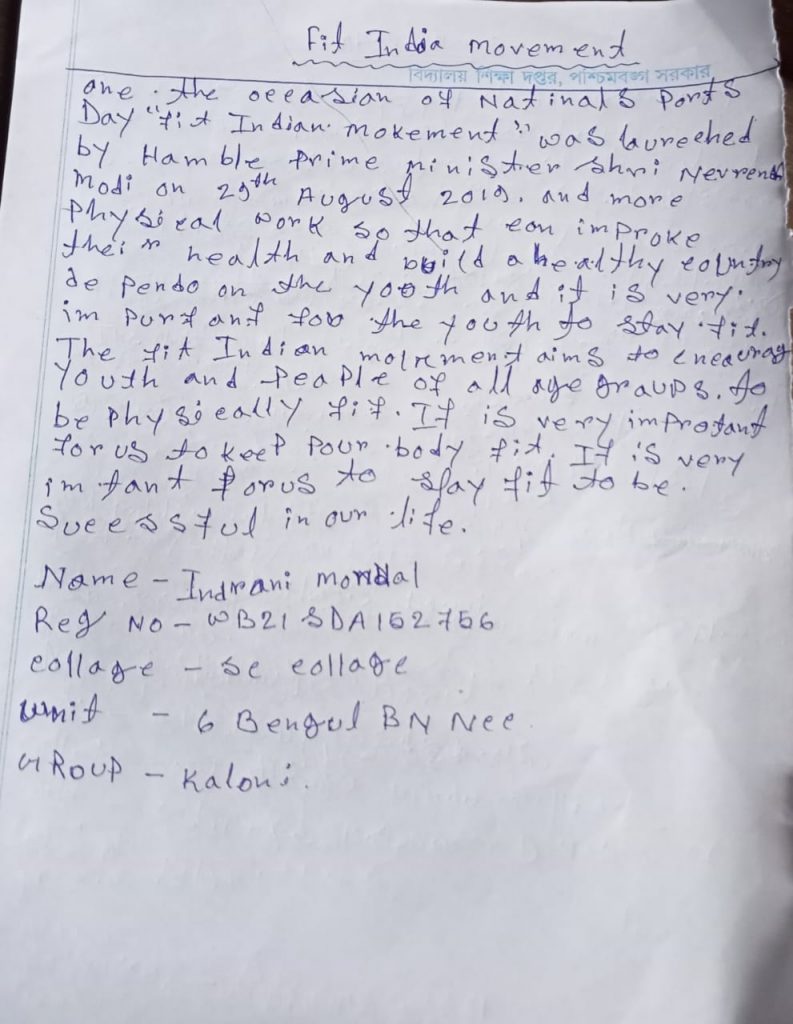 Fit India movement
বিদ্যালয় শিক্ষা দপ্তর, পশ্চিমবঙ্গ সরকার
one the occasion of Natinals Ports
Day "Fit Indian mokement" was laureched
by Hamble Prime minister Shri Nevrend
modi on 29th August 2019. and more
Physical work so that con improke
their health and build a healthy country
de pendo on the youth and it is very.
im purtant for the youth to stay fit.
The fit Indian molrement aims to encourag
Youth and Peaple of all age graups. to
be physically fit. It is very improtant
for us to keep pour body fit. It is very
im tant forus to stay fit to be.
Sucessful in our life.
Name - Indrani mondal
Reg No - WB21SDA152756
collage - Sc collage
Unit - 6 Bengul BN Ncc
GROUP - Kaloni.